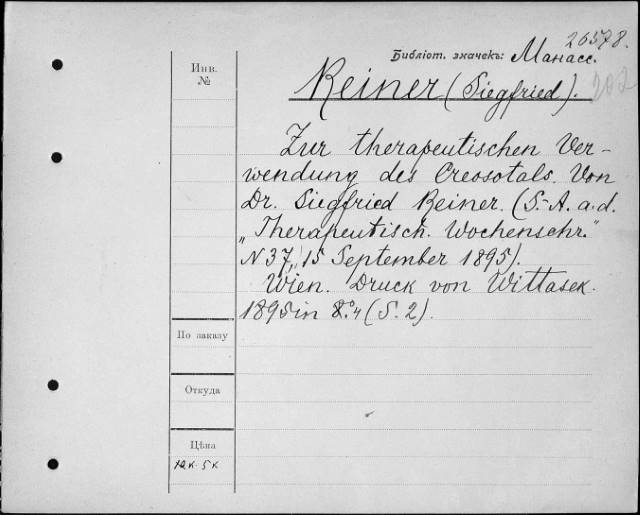 26578.
Библіот. значекъ: Манасс.
Инв.
№
Reiner (Siegfried).
202
Zur therapeutischen Ver-
wendung des Creosotals. Von
Dr. Siegfried Reiner. (S.-A. a. d.
„Therapeutisch. Wochenschr."
N 37, 15 September 1895).
Wien. Druck von Wittasek.
1895 in 8° (S. 2).
По заказу
Откуда
Цѣна
5 к